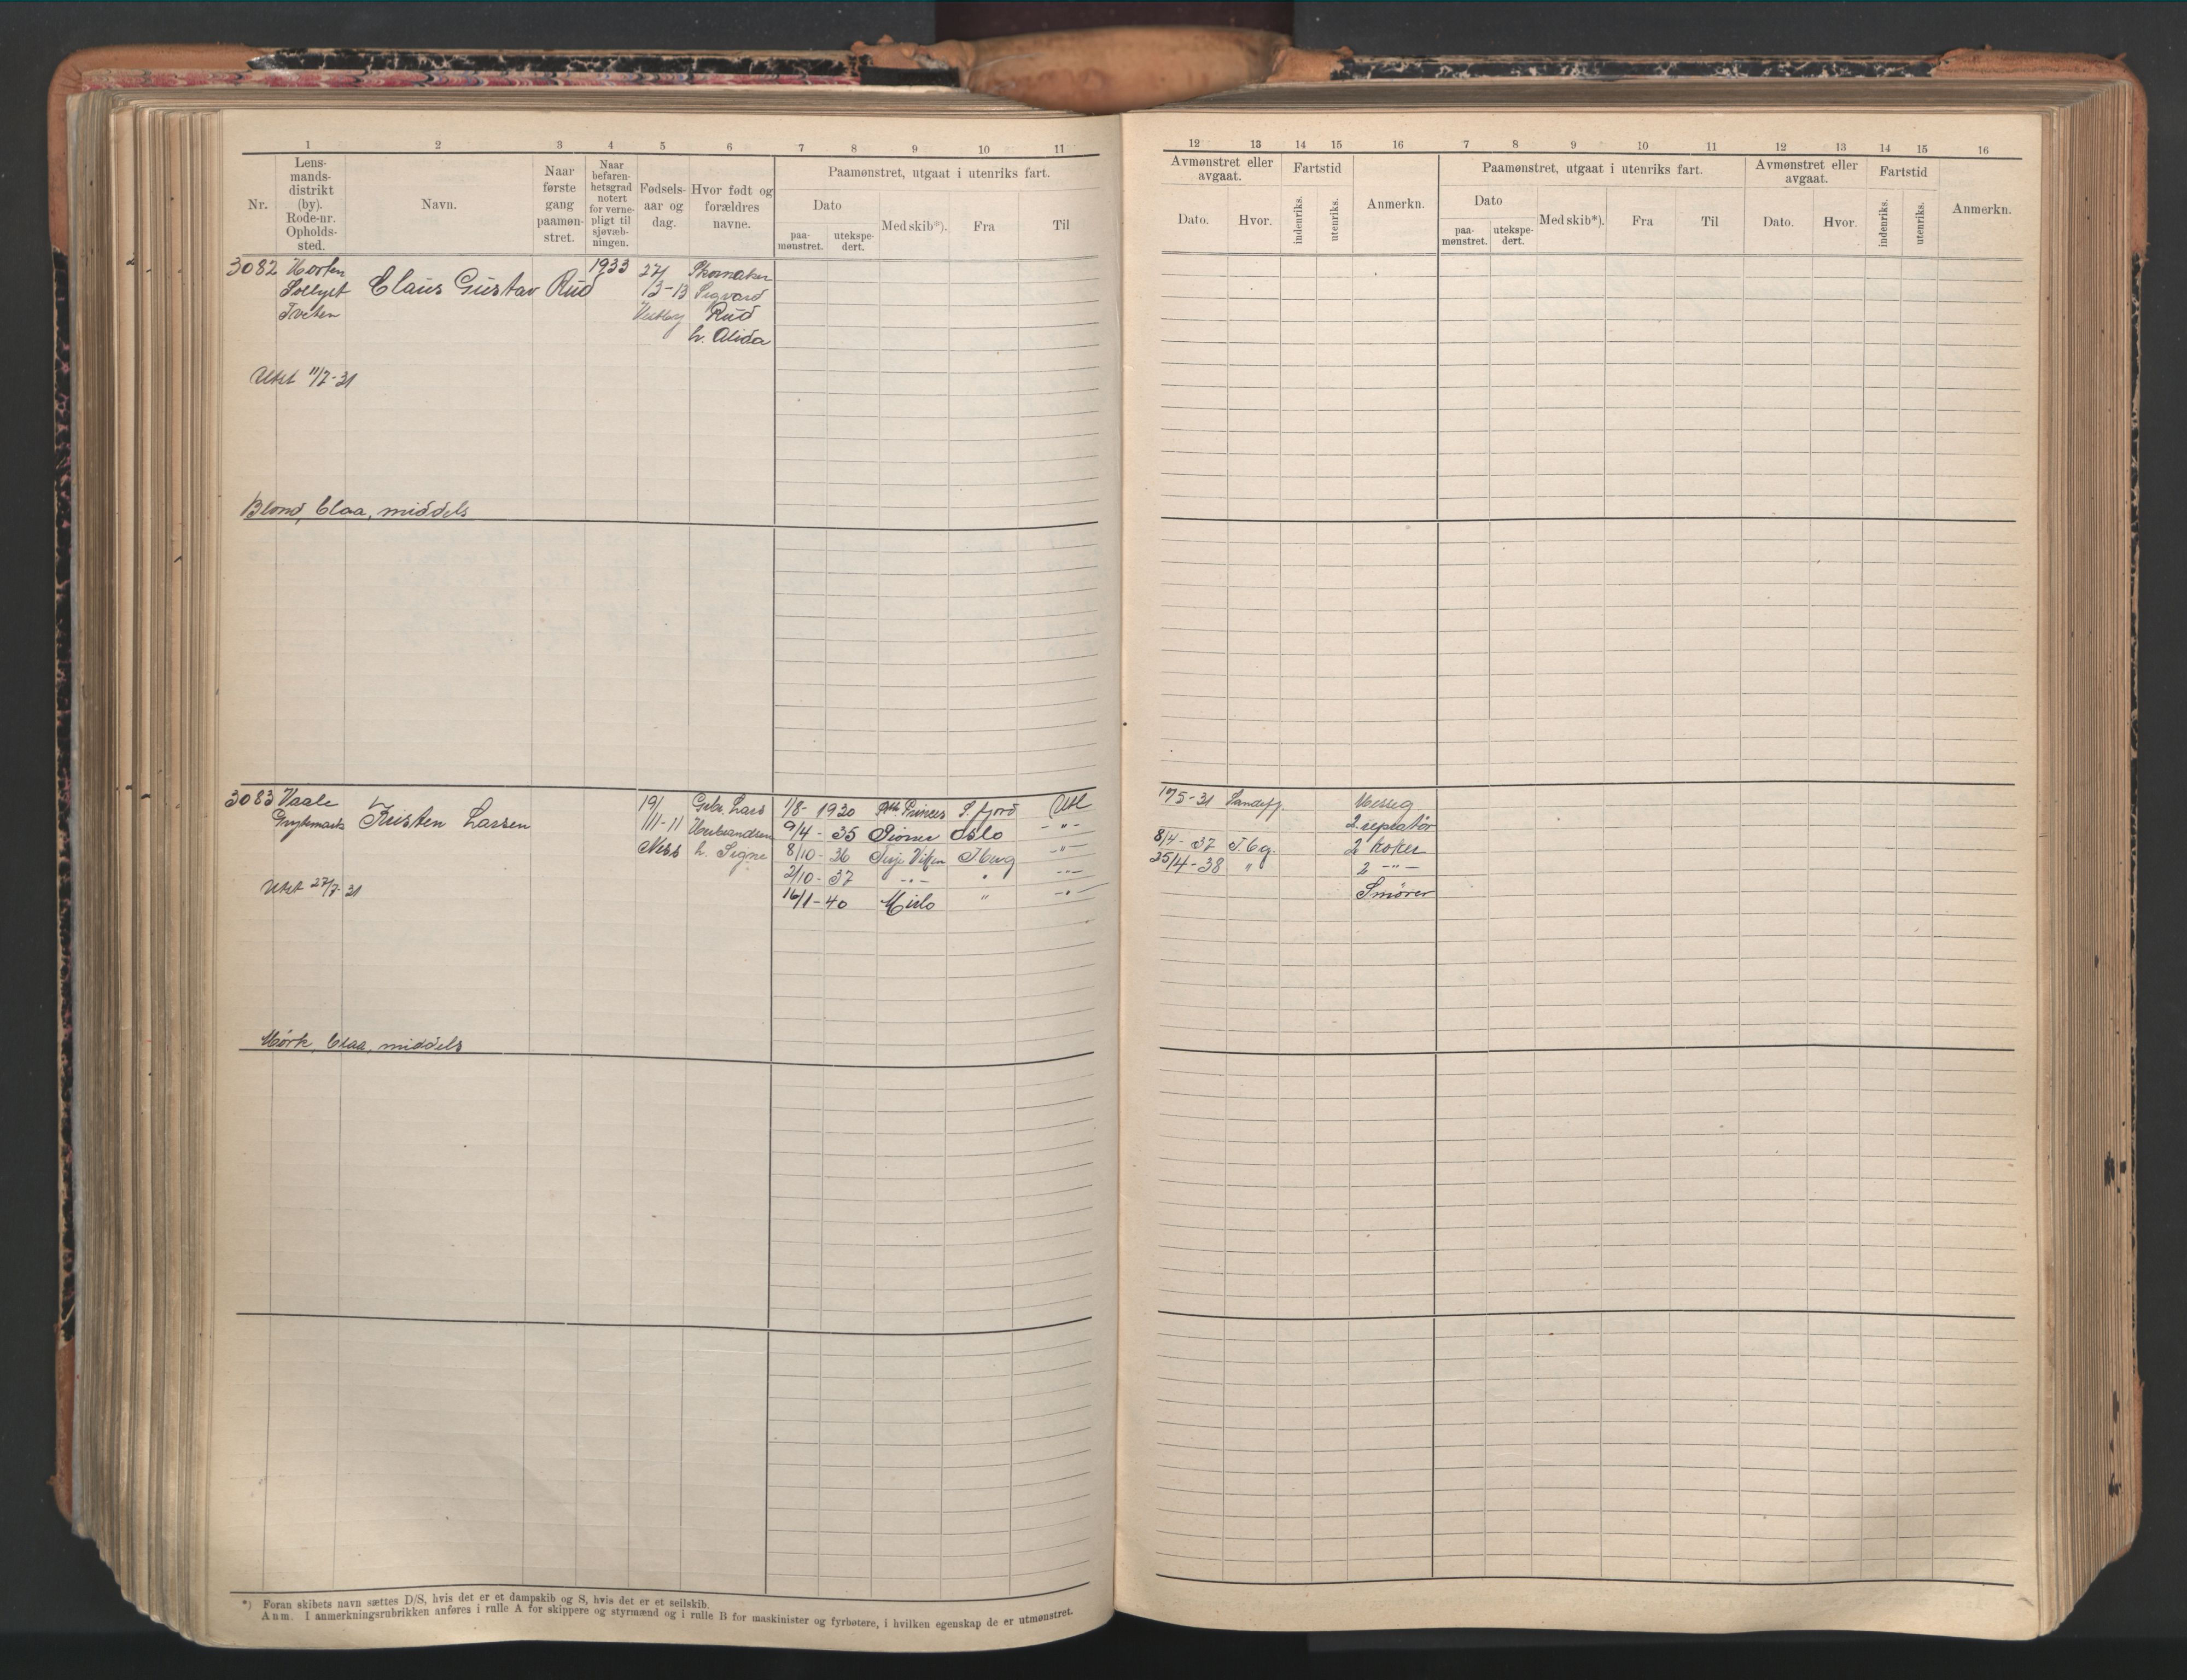 1 2 3 4 5 6 7 8 9 10 11
Nr. Lens-mands-distrikt (by). Rode-nr. Opholds-sted. Navn. Naar første gang paamøn-stret. Naar befaren-hetsgrad notert for verne-pligt til sjøvæb-ningen. Fødsels-aar og dag. Hvor født og forældres navne.
Paamønstret, utgaat i utenriks fart.
Dato
paa-mønstret. utekspe-dert. Med skib*). Fra Til
3082 Horten 1933 27/ Skomaker
Solbyst Claus Gustav Rud /3-13 Sigvard
Tveten Vestby Rud
h. Alida
Utst 11/7-31
Blond, blaa, middels
3083 Vaale 19/ Gbr. Lars 1/8- 1930 Princes S. fjord Utl
Kristen Larsen /11-11 Herbrandsen 9/4 - 35 Pioner Oslo -"-
Ness h. Signe 8/10- 36 Terje Viken Tberg -"-
2/10- 37 -"- " -"-
Utst 27/7-31 16/1-40 Mirlo " -"-
Mørk, blaa, middels
*) Foran skibets navn sættes D/S, hvis det er et dampskib og S, hvis det er et seilskib.
Anm. I anmerkningsrubrikken anføres i rulle A for skippere og styrmænd og i rulle B for maskinister og fyrbøtere, i hvilken egenskap de er utmønstret.
12 13 14 15 16 7 8 9 10 11 12 13 14 15 16
Avmønstret eller avgaat. Fartstid Anmerkn. Paamønstret, utgaat i utenriks fart. Avmønstret eller avgaat. Fartstid Anmerkn.
Dato. Hvor. indenriks. utenriks. Dato
paa-mønstret. utekspe-dert. Med skib*). Fra Til Dato. Hvor. indenriks. utenriks.
17 5-31 Sandefj. Messeg
2. sepratør
8/4- 37 Tbg. 2 koker
25/4-38 " 2 -"-
Smører